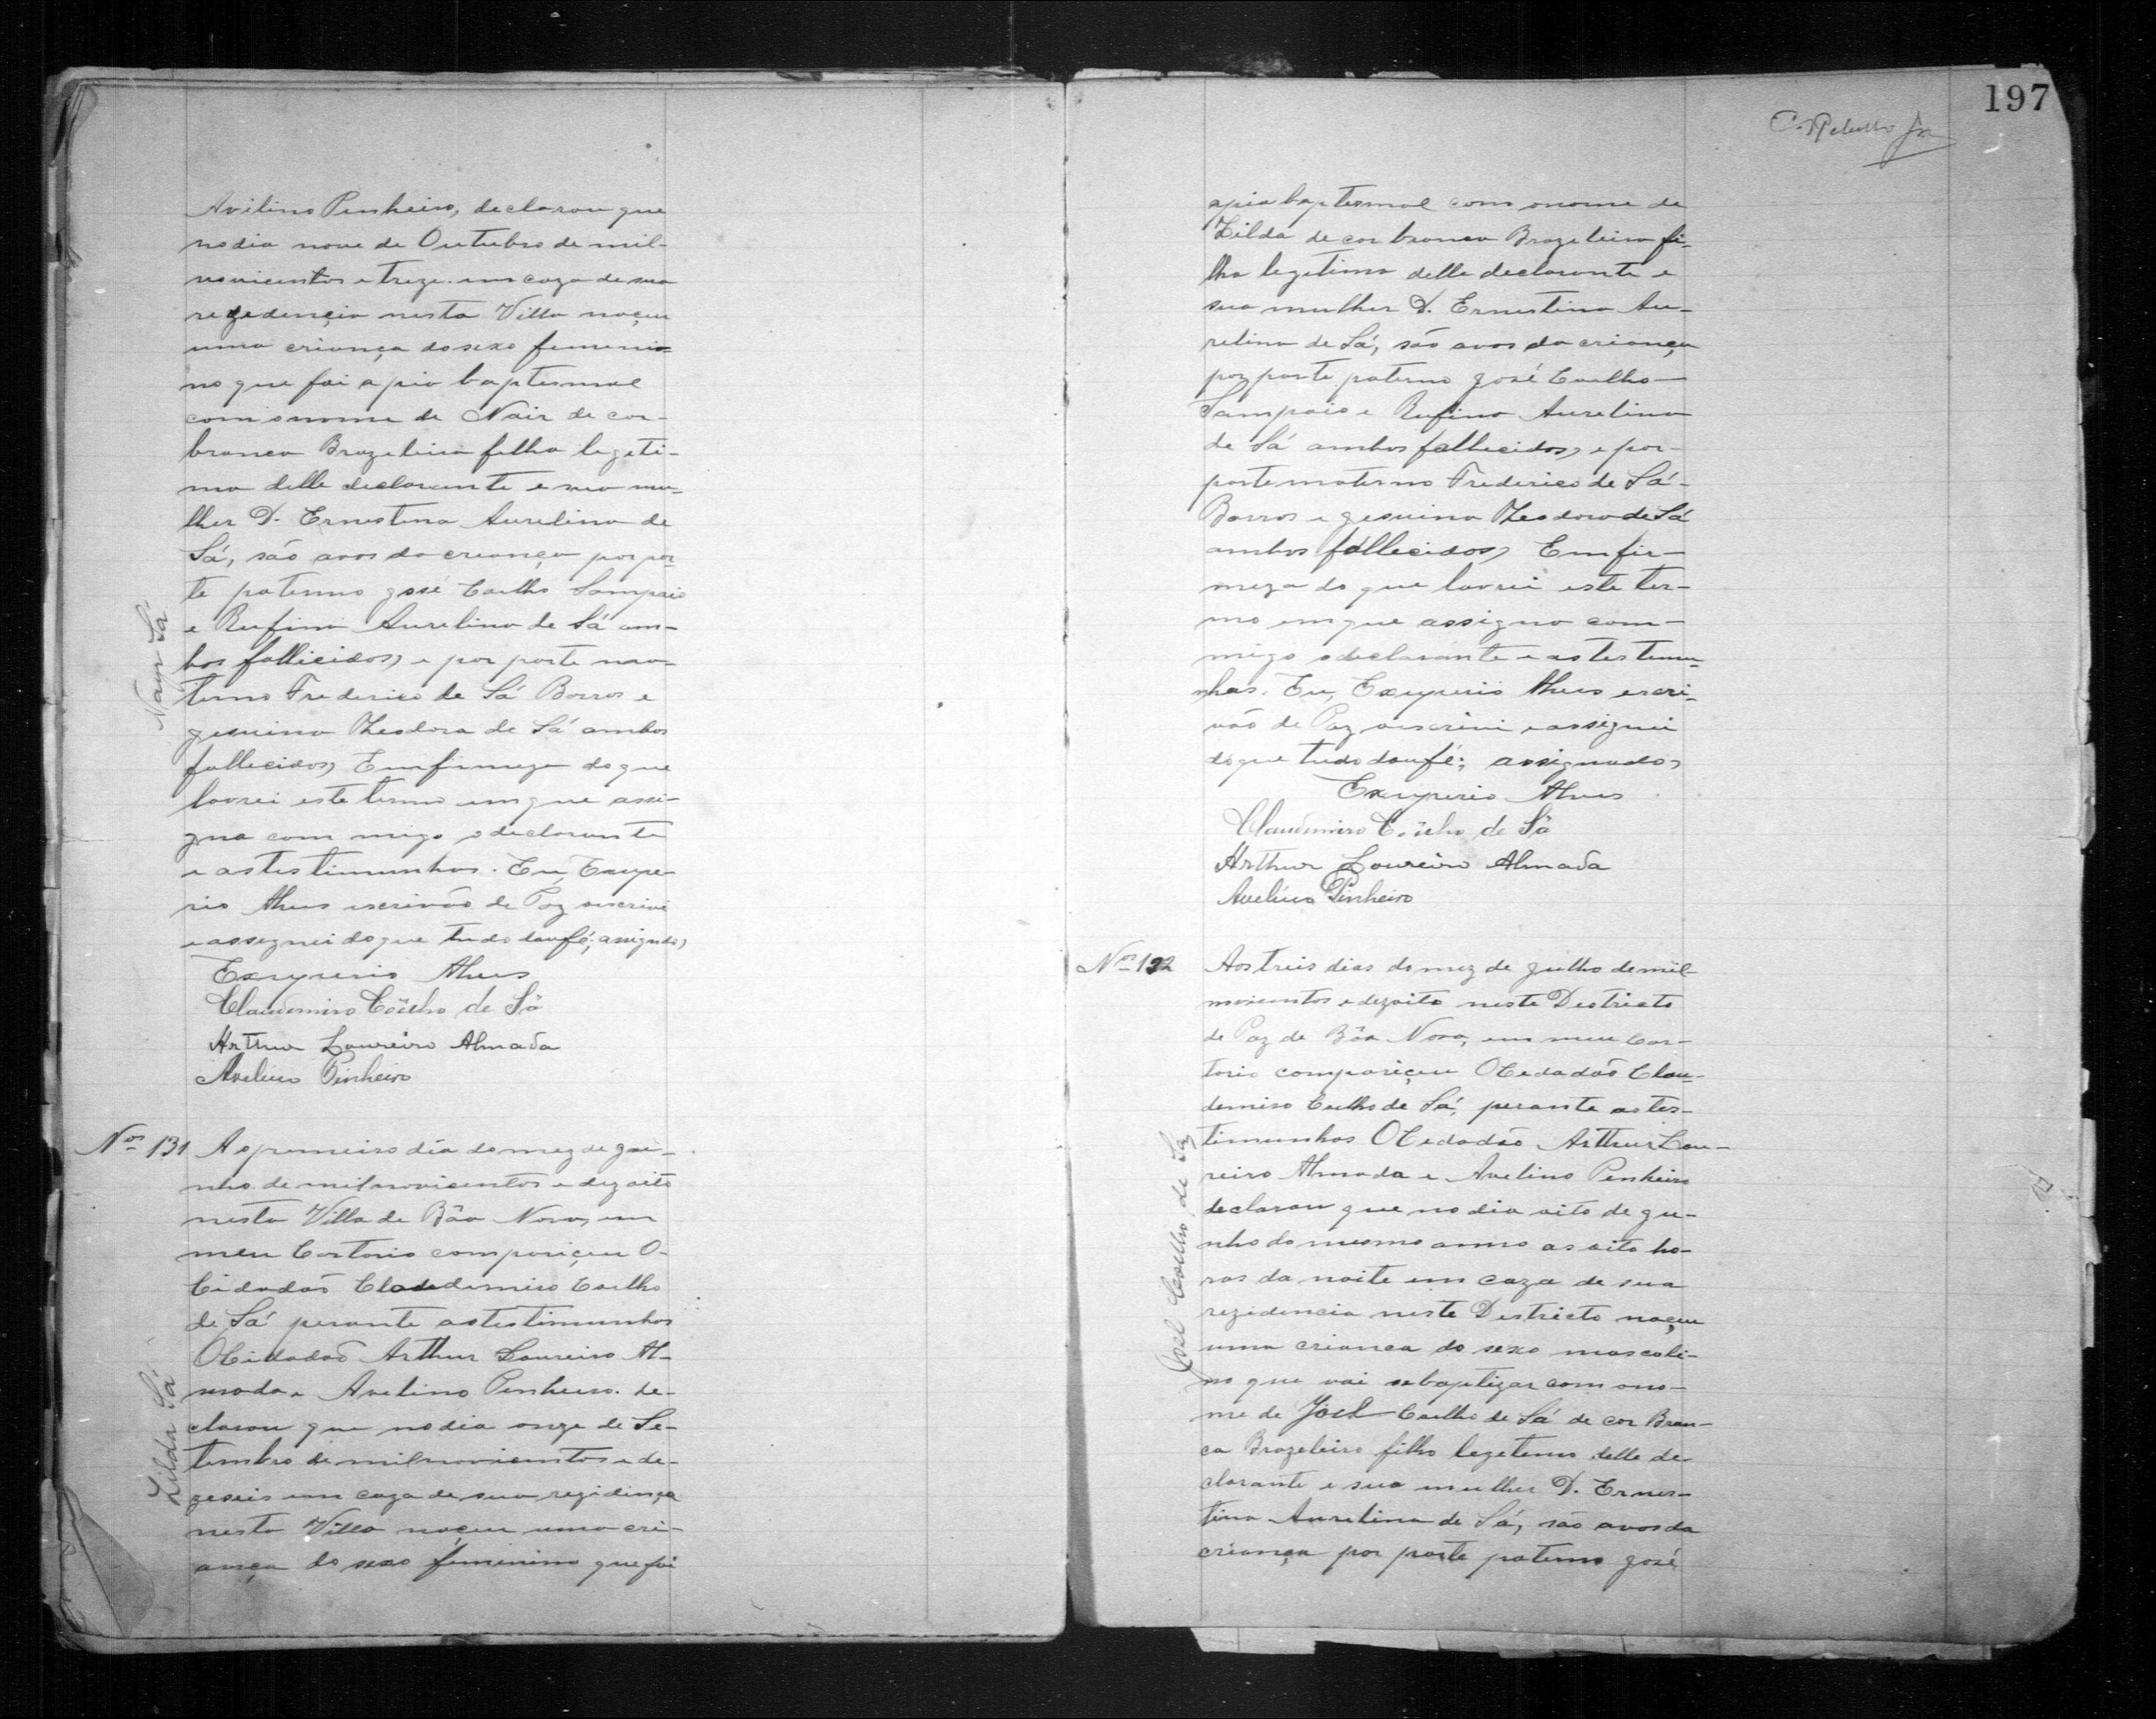 Avilino Penheiro, declarou que
no dia nove de Outubro de mil-
novicentos e treze em caza de sua
rezedençia nesta Villa naçeu
uma criança do sexo femeni-
no que foi a pia baptesmal
com o nome de Nair de cor-
branca Brazeleira filha legeti-
ma delle declarante e sua mu-
lher D. Ernestina Aurelina de
Sá, são avos da creança por par-
te paterno José Coelho Sampaio
e Rufina Aurelina de Sá am-
bos fallicidos, e por parte ma-
terno Frederico de Sá Barros e
Jesuina Theodora de Sá ambos
fallecidos, Em firmeza do que
lavrei este termo em que assi-
gna com migo o declarante
e as testimunhas. Eu, Exupe-
rio Alves escrivão de Paz escrivi
e assegnei do que tudo dou fé; assignados
Exuperio Alves
Claudemiro Coêlho de Sá
Arthur Loureiro Almada
Avelino Pinheiro
Nayr Sá
Nº 131 Ao premeiro dia do mez de Ju-
nho de mil novicentos e dezoito
nesta Villa de Bôa Nova, em
meu Cartorio compariçeu O
Cidadão Claudemiro Coelho
de Sá perante as testimunhas
O Cidadão Arthur Loureiro Al-
mada e Avelino Penheiro. de-
clarou que no dia onze de Se-
tembro de mil novicentos e de-
zeseis em caza de sua rezidinça
nesta Villa naçeu uma cri-
ança do sexo femenino que foi
Zilda Sá
197
a pia baptesmal com o nome de
Zilda de cor branca Brazeleira fi-
lha legetima delle declarante e
sua mulher D. Ernestina Au-
relina de Sá, são avos da criança
por parte paterno José Coelho
Sampaio e Rufina Aurelina
de Sá ambos fallecidos, e por-
parte materno Frederico de Sá-
Barros e Jesuina Theodora de Sá
ambos fallecidos, Em fir-
meza do que lavrei este ter-
mo em que assigna com-
migo o declarante e as testemu-
nhas. Eu, Exuperio Alves escri-
vão de Paz escrivi e assignei
do que tudo dou fé; assignados
Exuperio Alves
Claudemiro Coêlho de Sá
Arthur Loureiro Almada
Avelino Pinheiro
Nº 132 Aos treis dias do mez de Julho de mil
novicentos e dezoito neste Destricto
de Paz de Bôa Nova, em meu Car-
torio compariçeu O Cedadão Clau-
demiro Coelho de Sá, perante as tes-
timunhas O Cedadão Arthur Lou-
reiro Almada e Avelino Penheiro
declarou que no dia oito de Ju-
nho do mesmo anno as oito ho-
ras da noite em caza de sua
rezidencia neste Destricto naçeu
uma crianca do sexo mascoli-
no que vai se baptizar com o no-
me de Joel Coelho de Sá de cor Bran-
ca Brazeleiro filho legetemo delle de-
clarante e sua mulher D. Ernes-
tina Aurelina de Sá, são avos da
criança por parte paterno José
Joel Coelho de Sá